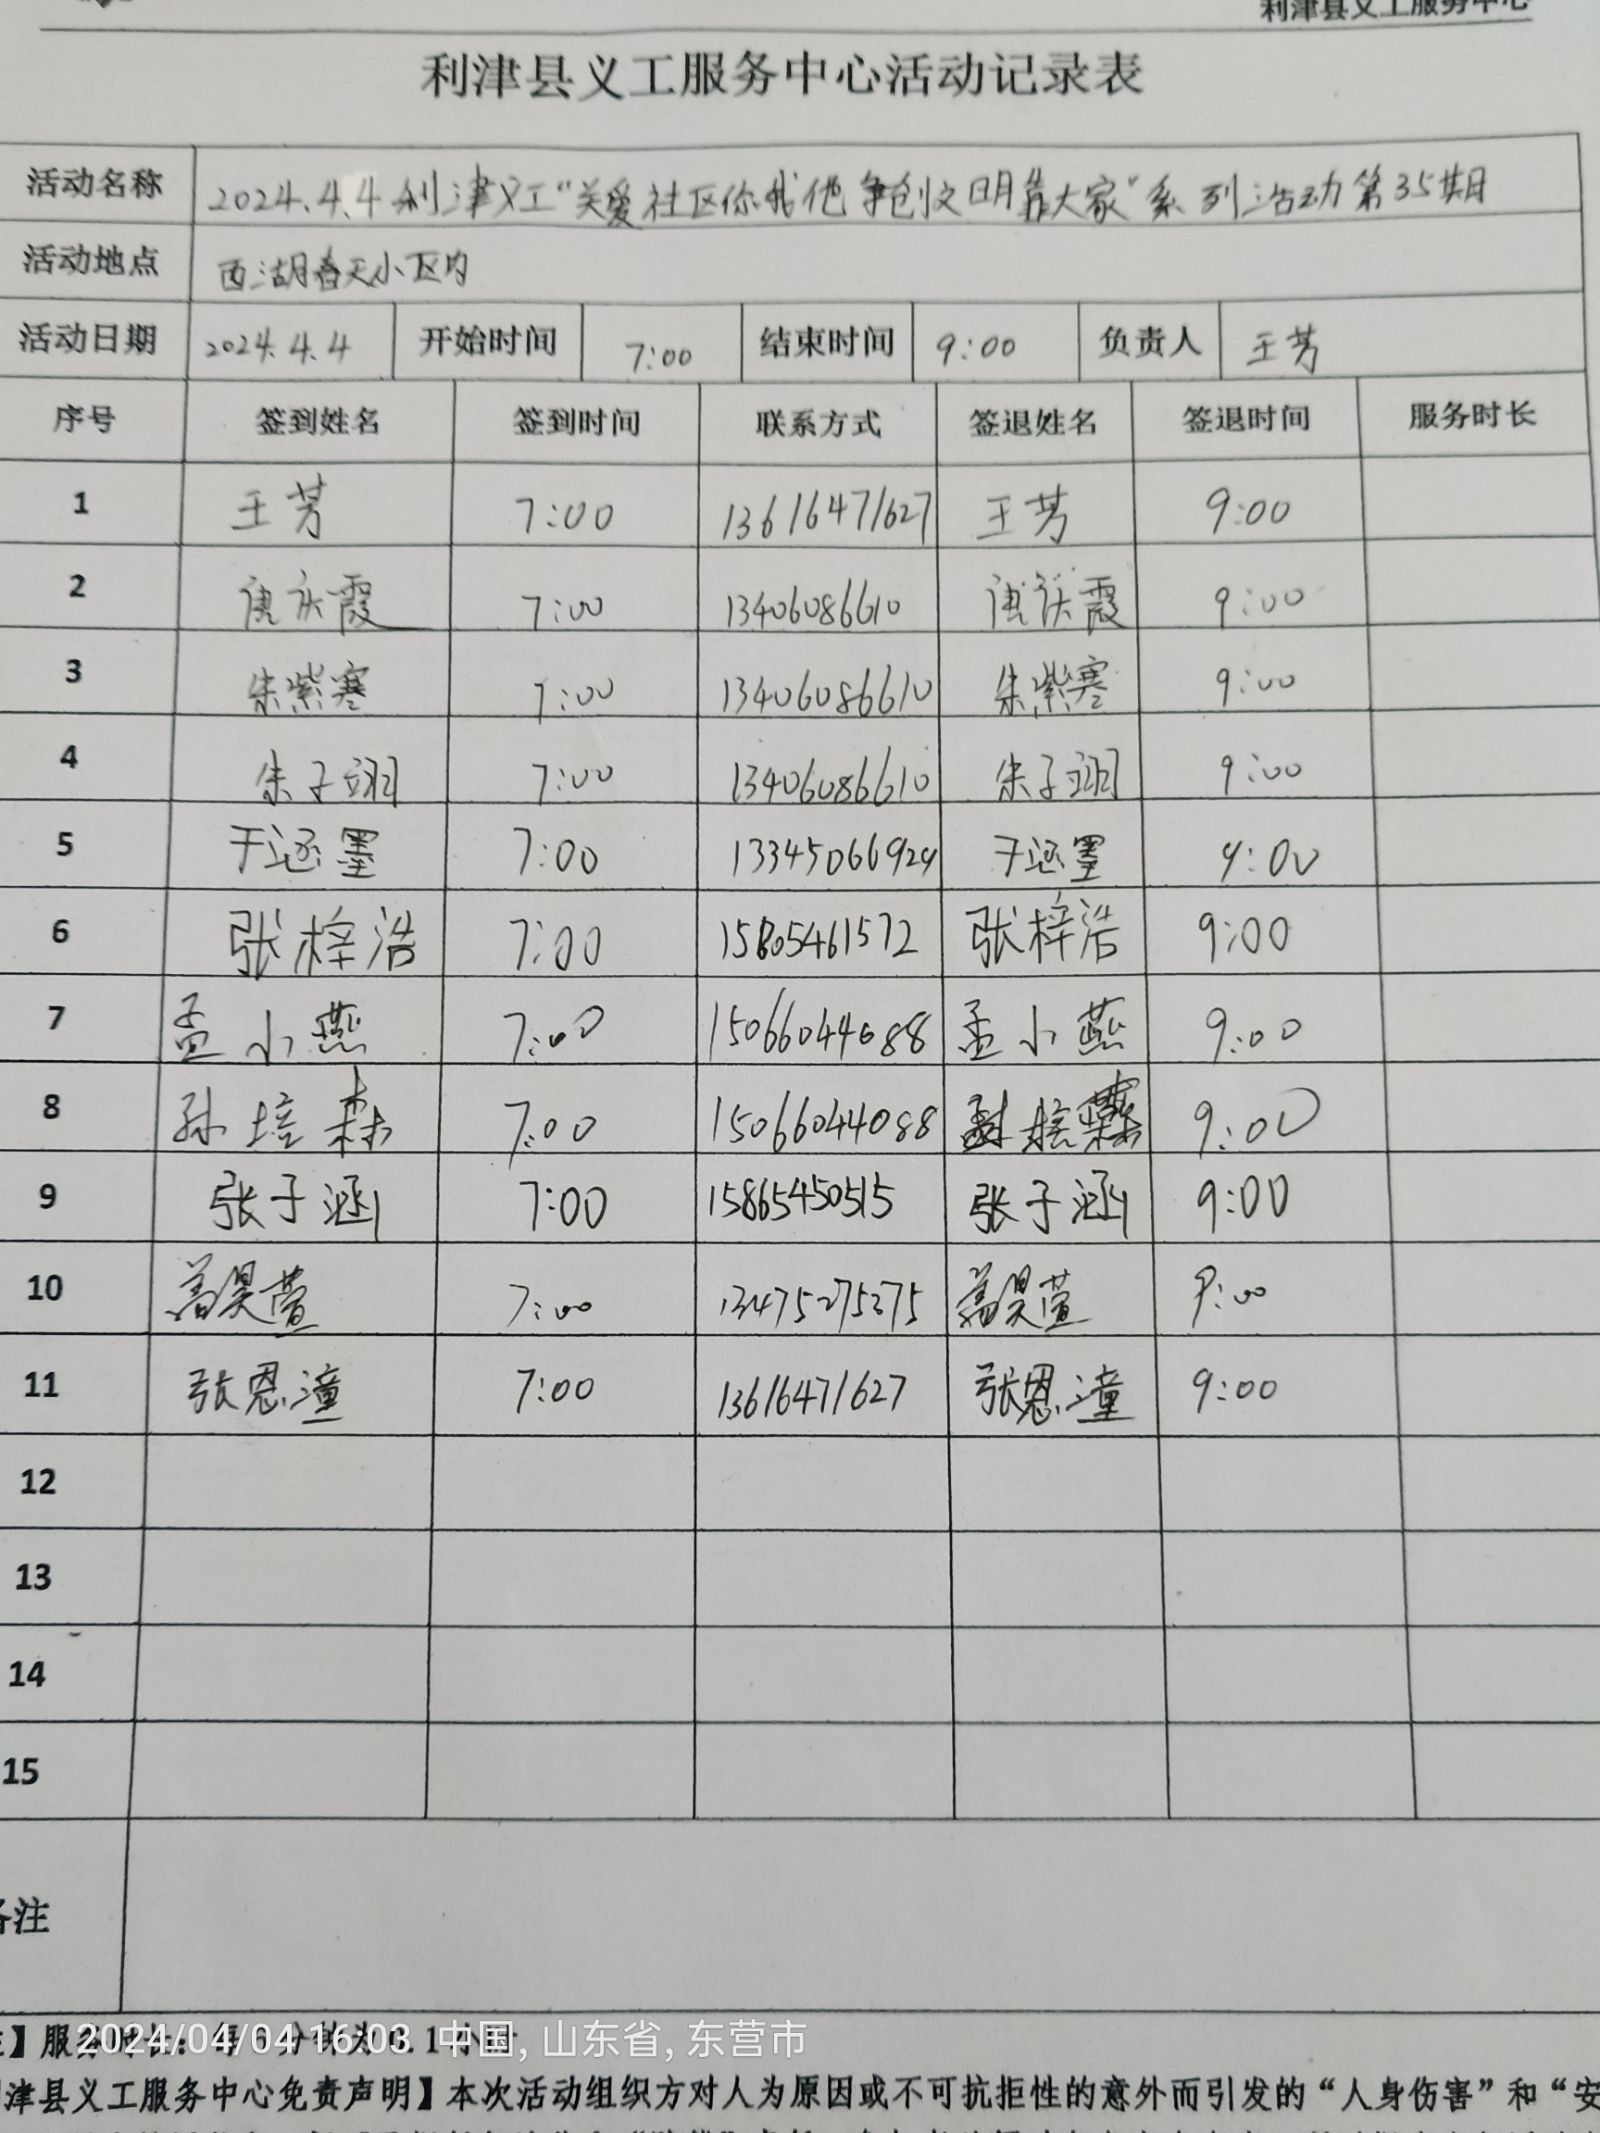 利津县义工服务中心
利津县义工服务中心活动记录表
活动名称 2024.4.4利津义工“关爱社区你我他争创文明靠大家”系列活动第35期
活动地点 西湖春天小区内
活动日期 2024.4.4 开始时间 7:00 结束时间 9:00 负责人 王芳
序号 签到姓名 签到时间 联系方式 签退姓名 签退时间 服务时长
1 王芳 7:00 13616471627 王芳 9:00
2 唐庆霞 7:00 13406086610 唐庆霞 9:00
3 朱紫寒 7:00 13406086610 朱紫寒 9:00
4 朱子翊 7:00 13406086610 朱子翊 9:00
5 于涵墨 7:00 13345066924 于涵墨 9:00
6 张梓浩 7:00 15805461572 张梓浩 9:00
7 孟小燕 7:00 15066044088 孟小燕 9:00
8 孙培森 7:00 15066044088 孙培森 9:00
9 张子涵 7:00 15865450515 张子涵 9:00
10 盖昊萱 7:00 13475275275 盖昊萱 9:00
11 张恩潼 7:00 13616471627 张恩潼 9:00
12
13
14
15
备注
】服务时长：每6分钟为0.1小时
2024/04/04 16:03 中国, 山东省, 东营市
津县义工服务中心免责声明】本次活动组织方对人为原因或不可抗拒性的意外而引发的“人身伤害”和“安